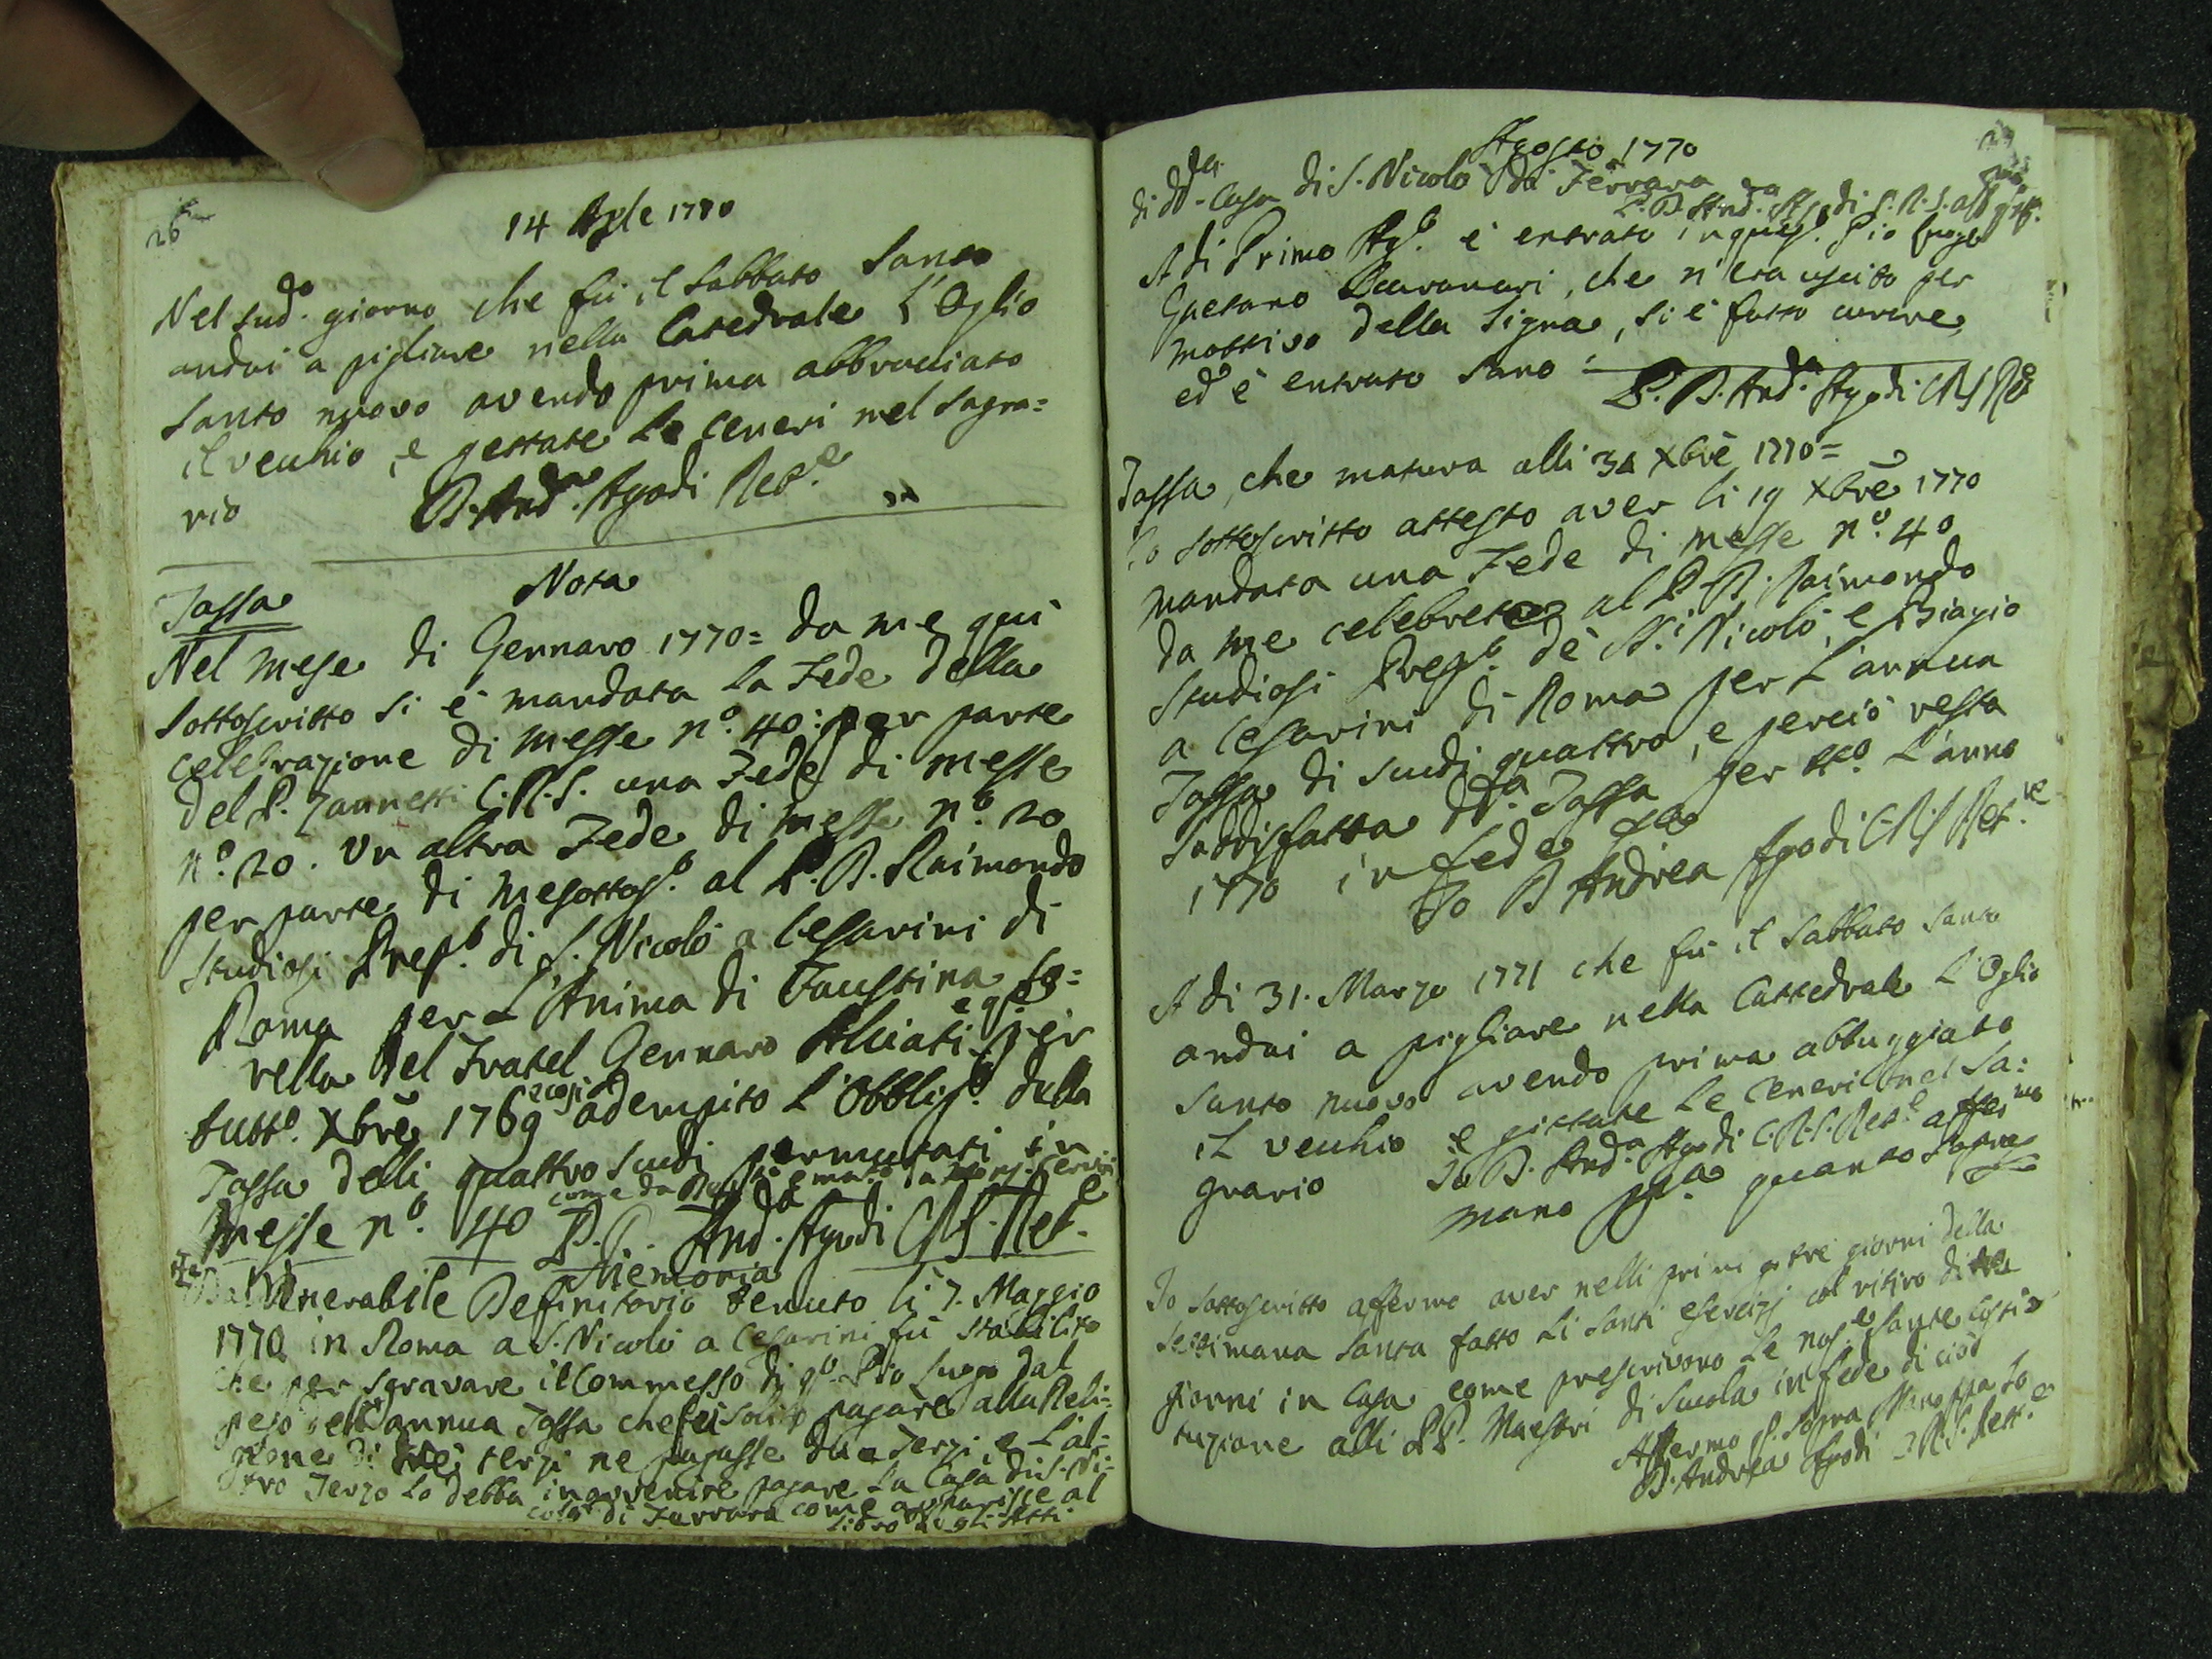 26
14 Aple 1770
Nel sud.º giorno che fù il Sabbato Santo
andai a pigliare nella Catedrale L'Oglio
Santo nuovo avendo prima abbrociato
il vecchio, e gettate Le Ceneri nel Sagra=
rio D. And.ª Agodi Ret.e
Nota
Tassa
Nel mese di Gennaro 1770= da me qui
Sottoscritto si è mandata La Fede della
celebrazione di messe nº. 40: per parte
del P. Zannetti C.R.S. una Fede di messe
nº. 20. Un altra Fede di messe nº. 20
per parte di me sottos.º al P. D. Raimondo
Studiosi Prep.º di S. Nicolò a Cesarini di
Roma per L'Anima di Faustina So=
rella del Fratel Gennaro Alciati, e q.e per
tutt.º Xbrē 1769 e così adempito L'Obblig.º della
Tassa delli quattro Scudi permutati in
messe nº. 40 come da
P. D. And.ª Agodi CRS. Ret.e
Memoria
Dal Venerabile Definitorio tenuto li 7. Maggio
1770 in Roma a S. Nicolò a Cesarini fù stabilito
che per sgravare il Commesso di q.º Pio Luogo dal
peso dell'annua Tassa che fù solito pagare alla Reli=
gione di tre terzi ne pagasse due Terzi, e L'al=
tro Terzo Lo debba in avvenire pagare La Casa di S. Ni=
colò di Ferrara come apparisce al
Libro degli Atti
Agosto 1770
di dd.ª Casa di S. Nicolò di Ferrara
P. D. And.ª Agodi C.R.S. aff.º
A di Primo Ag.º è entrato in ques.º Pio Luogo
Gaetano, che n'era uscito per
mottivo della Tigna, si è fatto curare,
ed è entrato Sano:
P. D. And.ª Agodi CRS Rē
Tassa, che matura alli 31 Xbrē 1770=
Io Sottoscritto attesto aver li 19 Xbrē 1770
mandata una Fede di messe nº. 40
da me celebrate al P. D. Raimondo
Studiosi Prep.º de SS.i Nicolò, e Biagio
a Cesarini di Roma per L'annua
Tassa di Scudi quattro, e perciò resta
Saddisfatta dd.ª Tassa per tt.º L'anno
1770 in fede
Io D Andrea Agodi CRS Ret.re
A di 31. Marzo 1771 che fù il Sabbato Santo
andai a pigliare nella Cattedrale L'Oglio
Santo nuovo avendo prima abbuggiato
il vecchio e gittate Le Ceneri nel Sa=
grario Io D. And.ª Agodi C.R.S. Ret.e affermo
mano pp.ª quanto Sopra
Io Sottoscritto affermo aver nelli primi tre giorni della
Settimana Santa fatto Li Santi esercizj col ritiro di tre
giorni in Casa come prescrivono Le nos.e Sante Costi=
tuzione alli PP. Maestri di Scuola in fede di ciò
Affermo q.º Sopra Mano ppa Io
D. Andrea Agodi C.R.S. Rett.e